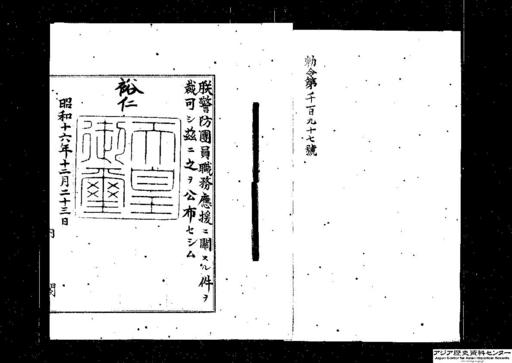 勅令第千百九十七號
朕警防團員職務應援ニ關スル件ヲ
裁可シ茲ニ之ヲ公布セシム
裕仁
天皇
御璽
昭和十六年十二月二十三日
内閣
アジア歴史資料センター
Japan Center for Asian Historical Records